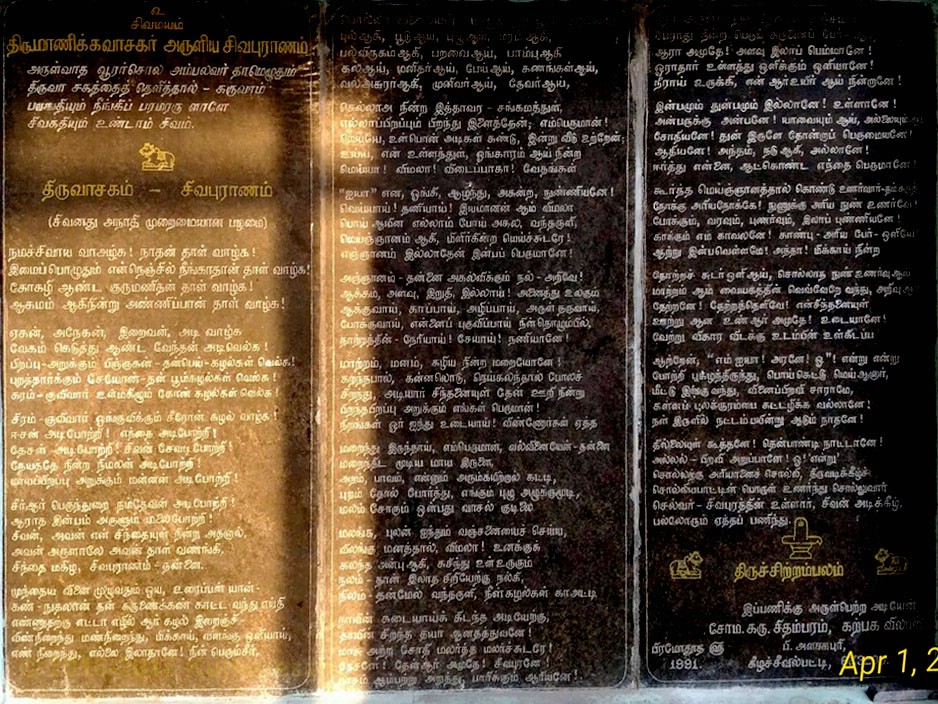 உ
சிவமயம்
திருமாணிக்கவாசகர் அருளிய சிவபுராணம்
திருவா சகத்தைத் தெரித்தால் - கருவாம்
சிவகதியும் உண்டாம் சிவம்.
திருவாசகம் - சிவபுராணம்
(சிவனது அநாதி முறைமையான பழமை)
நமச்சிவாய வாஅழ்க! நாதன் தாள் வாழ்க!
இமைப்பொழுதும் என்நெஞ்சில் நீங்காதான் தாள் வாழ்க!
கோகழி ஆண்ட குருமணிதன் தாள் வாழ்க!
ஆகமம் ஆகிநின்று அண்ணிப்பான் தாள் வாழ்க!
ஏகன், அநேகன், இறைவன், அடி வாழ்க
வேகம் கெடுத்து ஆண்ட வேந்தன் அடிவெல்க!
பிறப்பு-அறுக்கும் பிஞ்ஞகன்-தன்பெய்-கழல்கள் வெல்க!
புறத்தார்க்கும் சேயோன்-தன் பூங்கழல்கள் வெல்க!
கரம்-குவிவார் உள்மகிழும் கோன் கழல்கள் வெல்க!
சிரம்-குவிவார் ஓங்குவிக்கும் சீரோன் கழல் வாழ்க!
ஈசன் அடிபோற்றி! எந்தை அடிபோற்றி!
தேசன் அடிபோற்றி! சிவன் சேவடிபோற்றி!
நேயத்தே நின்ற நிமலன் அடிபோற்றி!
மாயப்பிறப்பு அறுக்கும் மன்னன் அடிபோற்றி!
சீர்ஆர் பெருந்துறை நம்தேவன் அடிபோற்றி!
ஆராத இன்பம் அருளும் மலைபோற்றி!
சிவன், அவன் என் சிந்தையுள் நின்ற அதனால்,
அவன் அருளாலே அவன் தாள் வணங்கி,
சிந்தை மகிழ, சிவபுராணம் - தன்னை.
முந்தைய வினை முழுவதும் ஓய, உரைப்பன் யான்-
கண்-நுதலான் தன் கருணைக்கண் காட்ட வந்து எய்தி
எண்ணுதற்கு எட்டா எழில் ஆர் கழல் இறைஞ்சி
விண்நிறைந்து மண்நிறைந்து, மிக்காய், விளங்கு ஒளியாய்,
எண் நிறைந்து, எல்லை இலாதானே! நின் பெரும்சீர்,
புல்ஆகி, பூடுஆய், புழுஆய், மரம்ஆகி,
பல்விருகம்ஆகி, பறவைஆய், பாம்புஆகி
கல்ஆய், மனிதர்ஆய், பேய்ஆய், கணங்கள்ஆய்,
வல்அசுரர்ஆகி, முனிவர்ஆய், தேவர்ஆய்,
செல்லாஅ நின்ற இத்தாவர - சங்கமத்துள்,
எல்லாப்பிறப்பும் பிறந்து இளைத்தேன்; எம்பெருமான்!
மெய்யே, உன்பொன் அடிகள் கண்டு, இன்று வீடு உற்றேன்;
உய்ய, என் உள்ளத்துள், ஓங்காரம் ஆய் நின்ற
மெய்யா! விமலா! விடைப்பாகா! வேதங்கள்
"ஐயா" என, ஓங்கி, ஆழ்ந்து, அகன்ற, நுண்ணியனே!
வெய்யாய்! தணியாய்! இயமானன் ஆம் விமலா
பொய் ஆயின எல்லாம் போய் அகல, வந்தருளி,
மெய்ஞ்ஞானம் ஆகி, மிளிர்கின்ற மெய்ச்சுடரே!
எஞ்ஞானம் இல்லாதேன் இன்பப் பெருமானே!
அஞ்ஞானம் - தன்னை அகல்விக்கும் நல் - அறிவே!
ஆக்கம், அளவு, இறுதி, இல்லாய்! அனைத்து உலகும்
ஆக்குவாய், காப்பாய், அழிப்பாய், அருள்தருவாய்,
போக்குவாய், என்னைப் புகுவிப்பாய் நின்தொழும்பில்,
நாற்றத்தின்-நேரியாய்! சேயாய்! நணியானே!
மாற்றம், மனம், கழிய நின்ற மறையோனே!
கறந்தபால், கன்னலொடு, நெய்கலந்தாற் போலச்
சிறந்து, அடியார் சிந்தனையுள் தேன் ஊறி நின்று
பிறந்தபிறப்பு அறுக்கும் எங்கள் பெருமான்!
நிறங்கள் ஓர் ஐந்து உடையாய்! விண்ணோர்கள் ஏத்த
மறைந்து இருந்தாய், எம்பெருமான், வல்வினையேன்-தன்னை
மறைந்திட மூடிய மாய இருளை,
அறம், பாவம், என்னும் அரும்கயிற்றால் கட்டி,
புறம் தோல் போர்த்து, எங்கும் புழு அழுக்குமூடி,
மலம் சோரும் ஒன்பது வாசல் குடிலை
மலங்க, புலன் ஐந்தும் வஞ்சனையைச் செய்ய,
விலங்கு மனத்தால், விமலா! உனக்குக்
கலந்த அன்புஆகி, கசிந்து உள்உருகும்
நலம் - தான் இலாத சிறியேற்கு நல்கி,
நிலம்-தன்மேல் வந்தருளி, நீள்கழல்கள் காஅட்டி
நாயின் கடையாய்க் கிடந்த அடியேற்கு,
தாயின் சிறந்த தயா ஆனதத்துவனே!
மாசு அற்ற சோதி மலர்ந்த மலர்ச்சுடரே!
தேசனே! தேன்ஆர் அமுதே! சிவபுரனே!
பாசம் ஆம்பற்று அறுத்து, பாரிக்கும் ஆரியனே!
ஆரா அமுதே! அளவு இலாப் பெம்மானே!
ஓராதார் உள்ளத்து ஒளிக்கும் ஒளியானே!
நீராய் உருக்கி, என் ஆர்உயிர் ஆய் நின்றானே!
இன்பமும் துன்பமும் இல்லானே! உள்ளானே!
அன்பருக்கு அன்பனே! யாவையும் ஆய், அல்லையும்
சோதியனே! துன் இருளே தோன்றாப் பெருமையனே!
ஆதியனே! அந்தம், நடுஆகி, அல்லானே!
ஈர்த்து என்னை, ஆட்கொண்ட எந்தை பெருமானே!
கூர்த்த மெய்ஞ்ஞானத்தால் கொண்டு உணர்வார்-தம்
நோக்கு அரியநோக்கே! நுணுக்கு அரிய நுண் உணர்வே!
போக்கும், வரவும், புணர்வும், இலாப் புண்ணியனே!
காக்கும் எம் காவலனே! காண்பு-அரிய பேர்-ஒளியே
ஆற்று இன்பவெள்ளமே! அத்தா! மிக்காய் நின்ற
தோற்றச் சுடர் ஒளிஆய், சொல்லாத நுண் உணர்வுஆய்
மாற்றம் ஆம் வையகத்தின் வெவ்வேறே வந்து, அறிவு
தேற்றனே! தேற்றத்தெளிவே! என்சிந்தனையுள்
ஊற்று ஆன உண்ஆர் அமுதே! உடையானே!
வேற்று விகார விடக்கு உடம்பின் உள்கிடப்ப
ஆற்றேன்; "எம் ஐயா! அரனே! ஓ" என்று என்று
போற்றி புகழ்ந்திருந்து, பொய்கெட்டு மெய் ஆனார்,
மீட்டு இங்குவந்து, வினைப்பிறவி சாராமே,
கள்ளப் புலக்குரம்பை கட்டழிக்க வல்லானே!
நள் இருளில் நட்டம்பயின்று ஆடும் நாதனே!
தில்லையுள் கூத்தனே! தென்பாண்டி நாட்டானே!
அல்லல்-பிறவி அறுப்பானே! ஓ! என்று
சொல்லற்கு அரியானைச் சொல்லி, திருவடிக்கீழ்ச்
சொல்லியபாட்டின் பொருள் உணர்ந்து சொல்லுவார்
செல்வர்-சிவபுரத்தின் உள்ளார், சிவன் அடிக்கீழ்,
பல்லோரும் ஏத்தப் பணிந்து.
திருச்சிற்றம்பலம்
இப்பணிக்கு அருள்பெற்ற அடியேன்
சோம.கரு. சிதம்பரம், கற்பக
பிரமோதூத ௵
பி. அளகாபுரி,
1991.
கீழச்சீவல்பட்டி,
Apr 1, 2